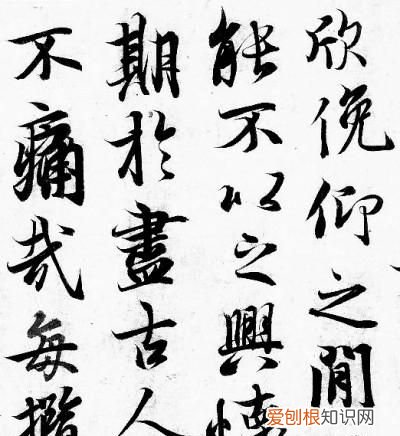 欣俛仰之間
能不以之興懷
期於盡古人
不痛哉每攬
爱刨根知识网